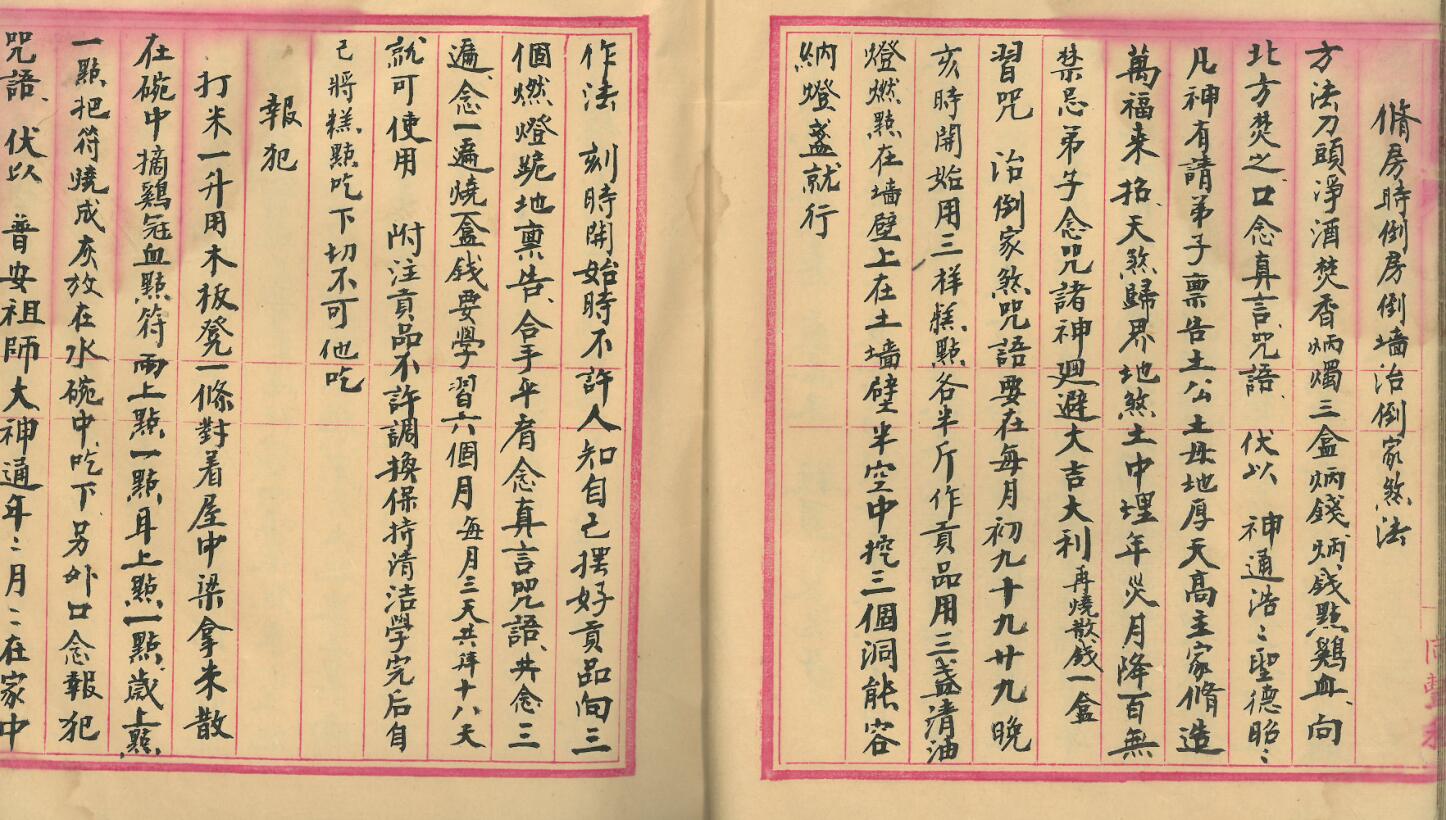 脩房時倒房倒墻治倒家煞法
方法刀頭淨酒焚香炳燭三盒炳錢炳錢點鷄血向
北方焚之口念真言咒語 伏以 神通浩〻聖德昭〻
凡神有請弟子禀告土公土母地厚天高主家脩造
萬福來招天煞歸界地煞土中埋年災月降百無
禁忌弟子念咒諸神迴避大吉大利 再燒散錢一盒
習咒 治倒家煞咒語要在每月初九十九廿九晚
亥時開始用三祥糕點各半斤作貢品用三盞清油
燈燃點在墻壁上在土墻壁半空中挖三個洞能容
納燈盞就行
作法 刻時開始時不許人知自己摆好貢品向三
個燃燈跪地禀告合手平胷念真言咒語共念三
遍念一遍燒一盒錢要學習六個月每月三天共拜十八天
就可使用 附注貢品不許調換保持清洁學完后自
己將糕點吃下切不可他吃
報犯
打米一升用木板凳一條對着屋中梁拿米散
在碗中摘鷄冠血點符兩上點一點耳上點一點歲上點
一點把符燒成灰放在水碗中吃下另外口念報犯
咒語 伏以 普安祖師大神通年〻月〻在家中